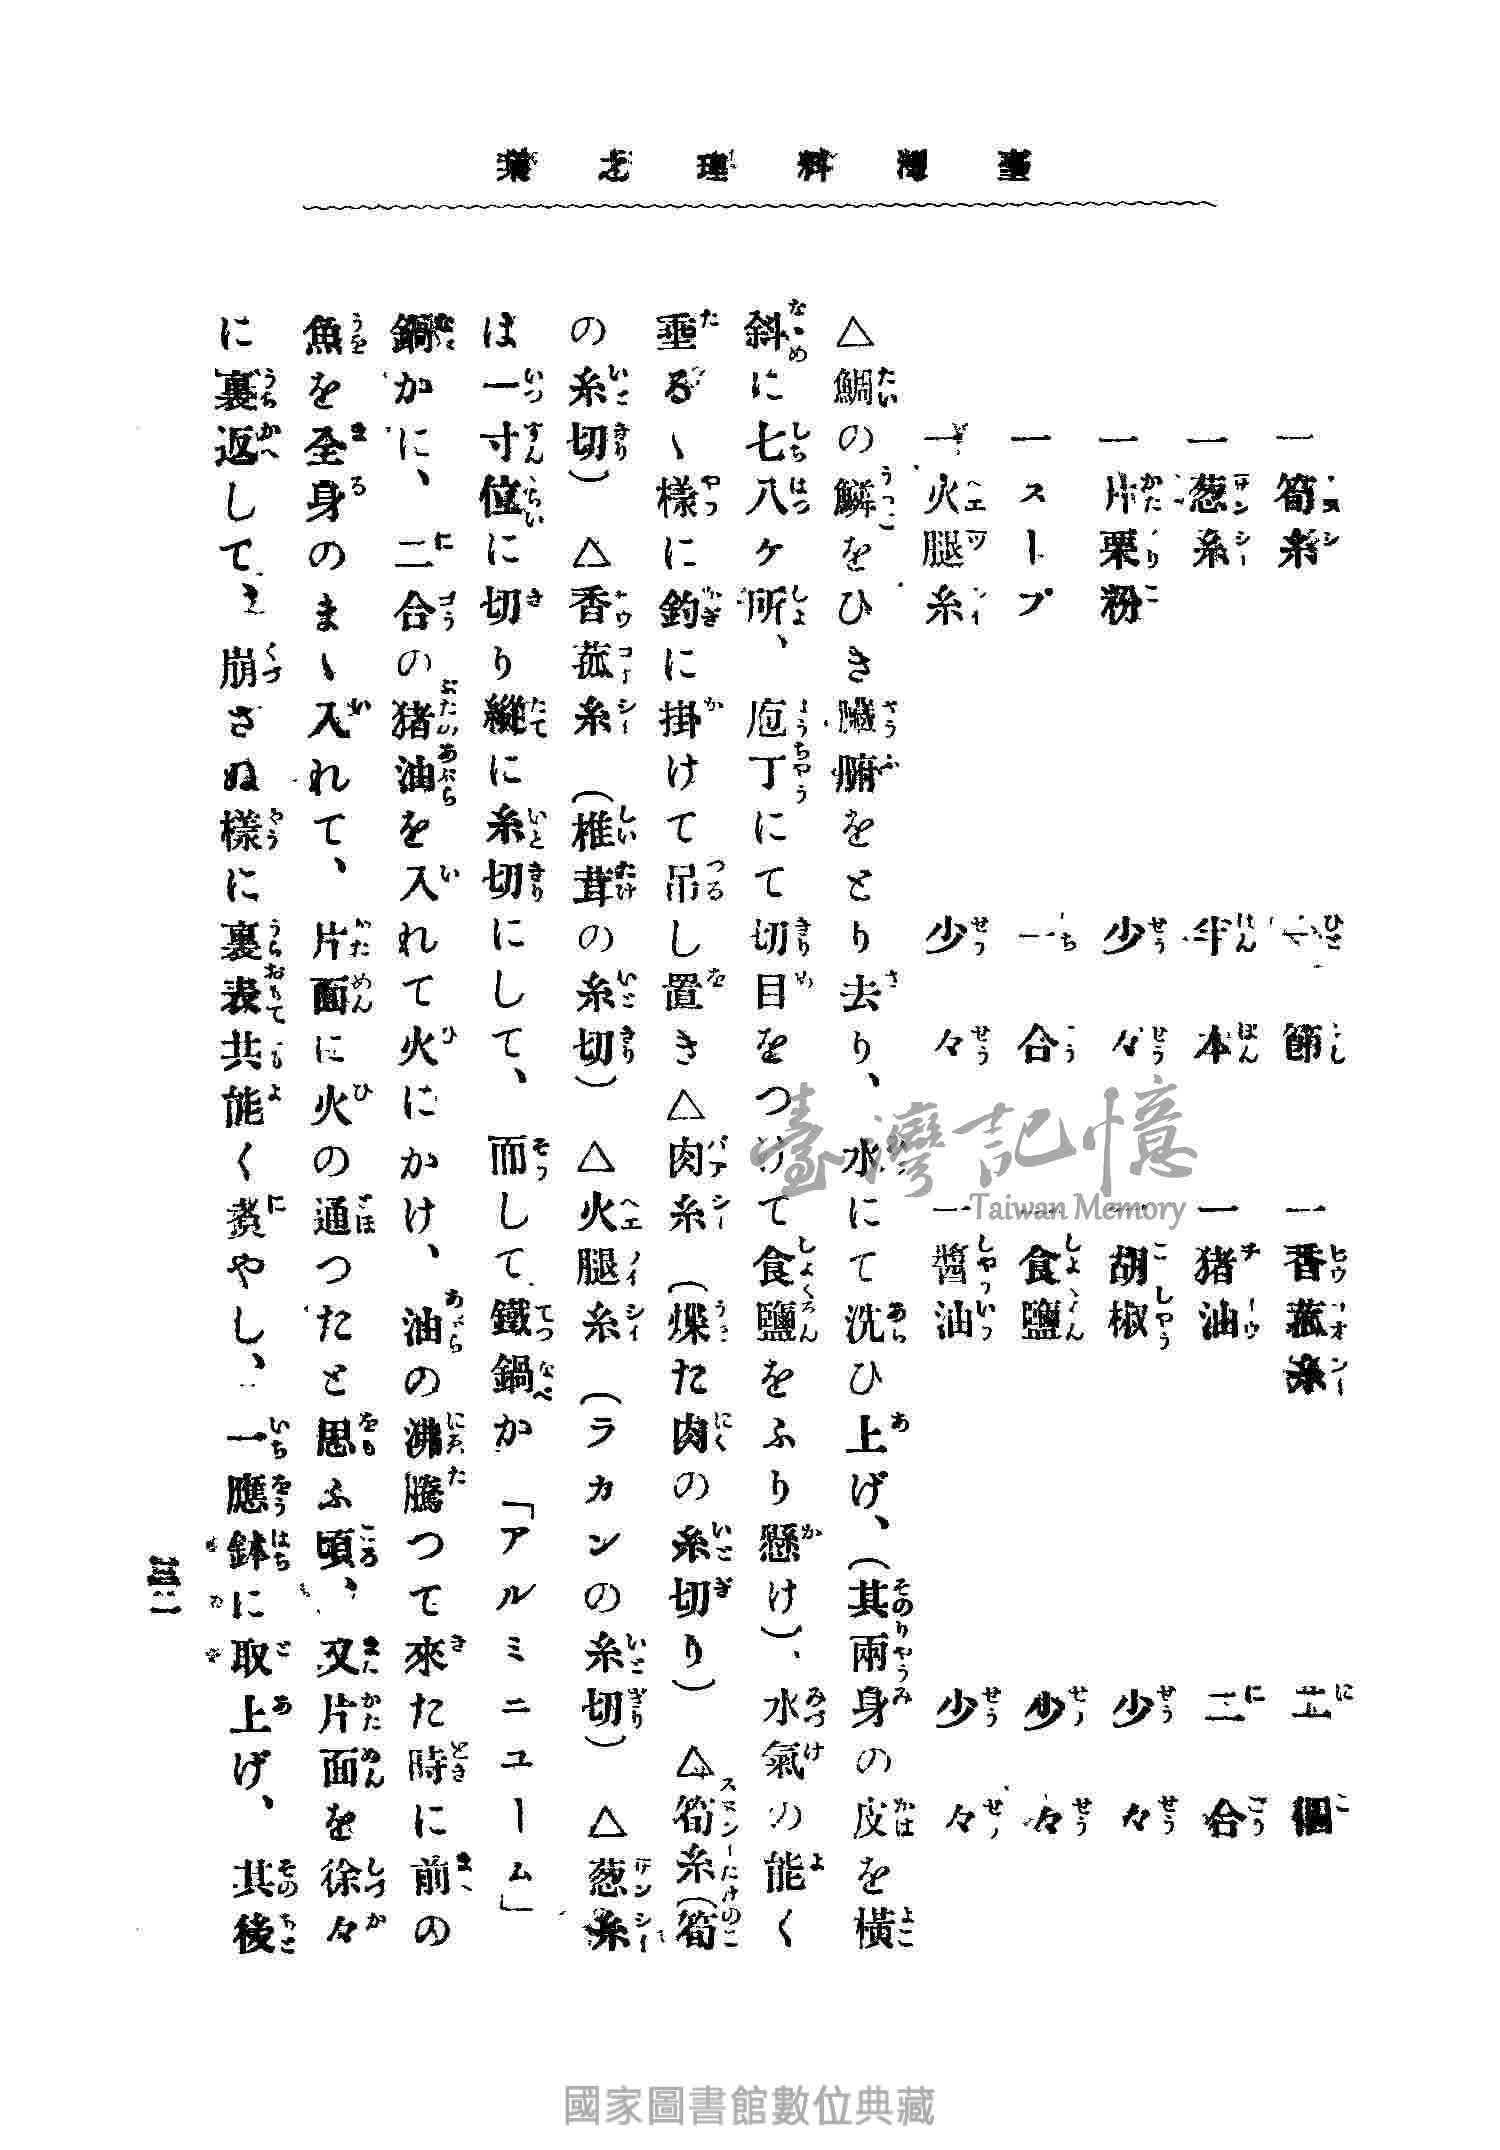 臺灣料理之栞
一筍糸 一節 一香菰糸 二個
一葱糸 半本 一猪油 二合
一片栗粉 少々 一胡椒 少々
一スートプ 一合 一食鹽 少々
一火腿糸 少々 一醬油 少々
△鯛の鱗をひき臟腑をとり去り、水にて洗ひ上げ、(其兩身の皮を横
斜に七八ヶ所、庖丁にて切目をつけて食鹽をふり懸け)、水氣の能く
垂るゝ樣に釣に掛けて吊し置き△肉糸(煠た肉の糸切り) △筍糸(筍
の糸切) △香菰糸(椎茸の糸切) △火腿糸(ラカンの糸切) △葱糸
は一寸位に切り縱に糸切にして、而して鐵鍋か「アルミニユーム」
鍋かに、二合の猪油を入れて火にかけ、油の沸騰つて來た時に前の
魚を全身のまゝ入れて、片面に火の通つたと思ふ頃、又片面を徐々
に裏返して、崩さぬ樣に裏表共能く煮やし、一應鉢に取上げ、其後
三二
臺灣記憶
Taiwan Memory
國家圖書館數位典藏